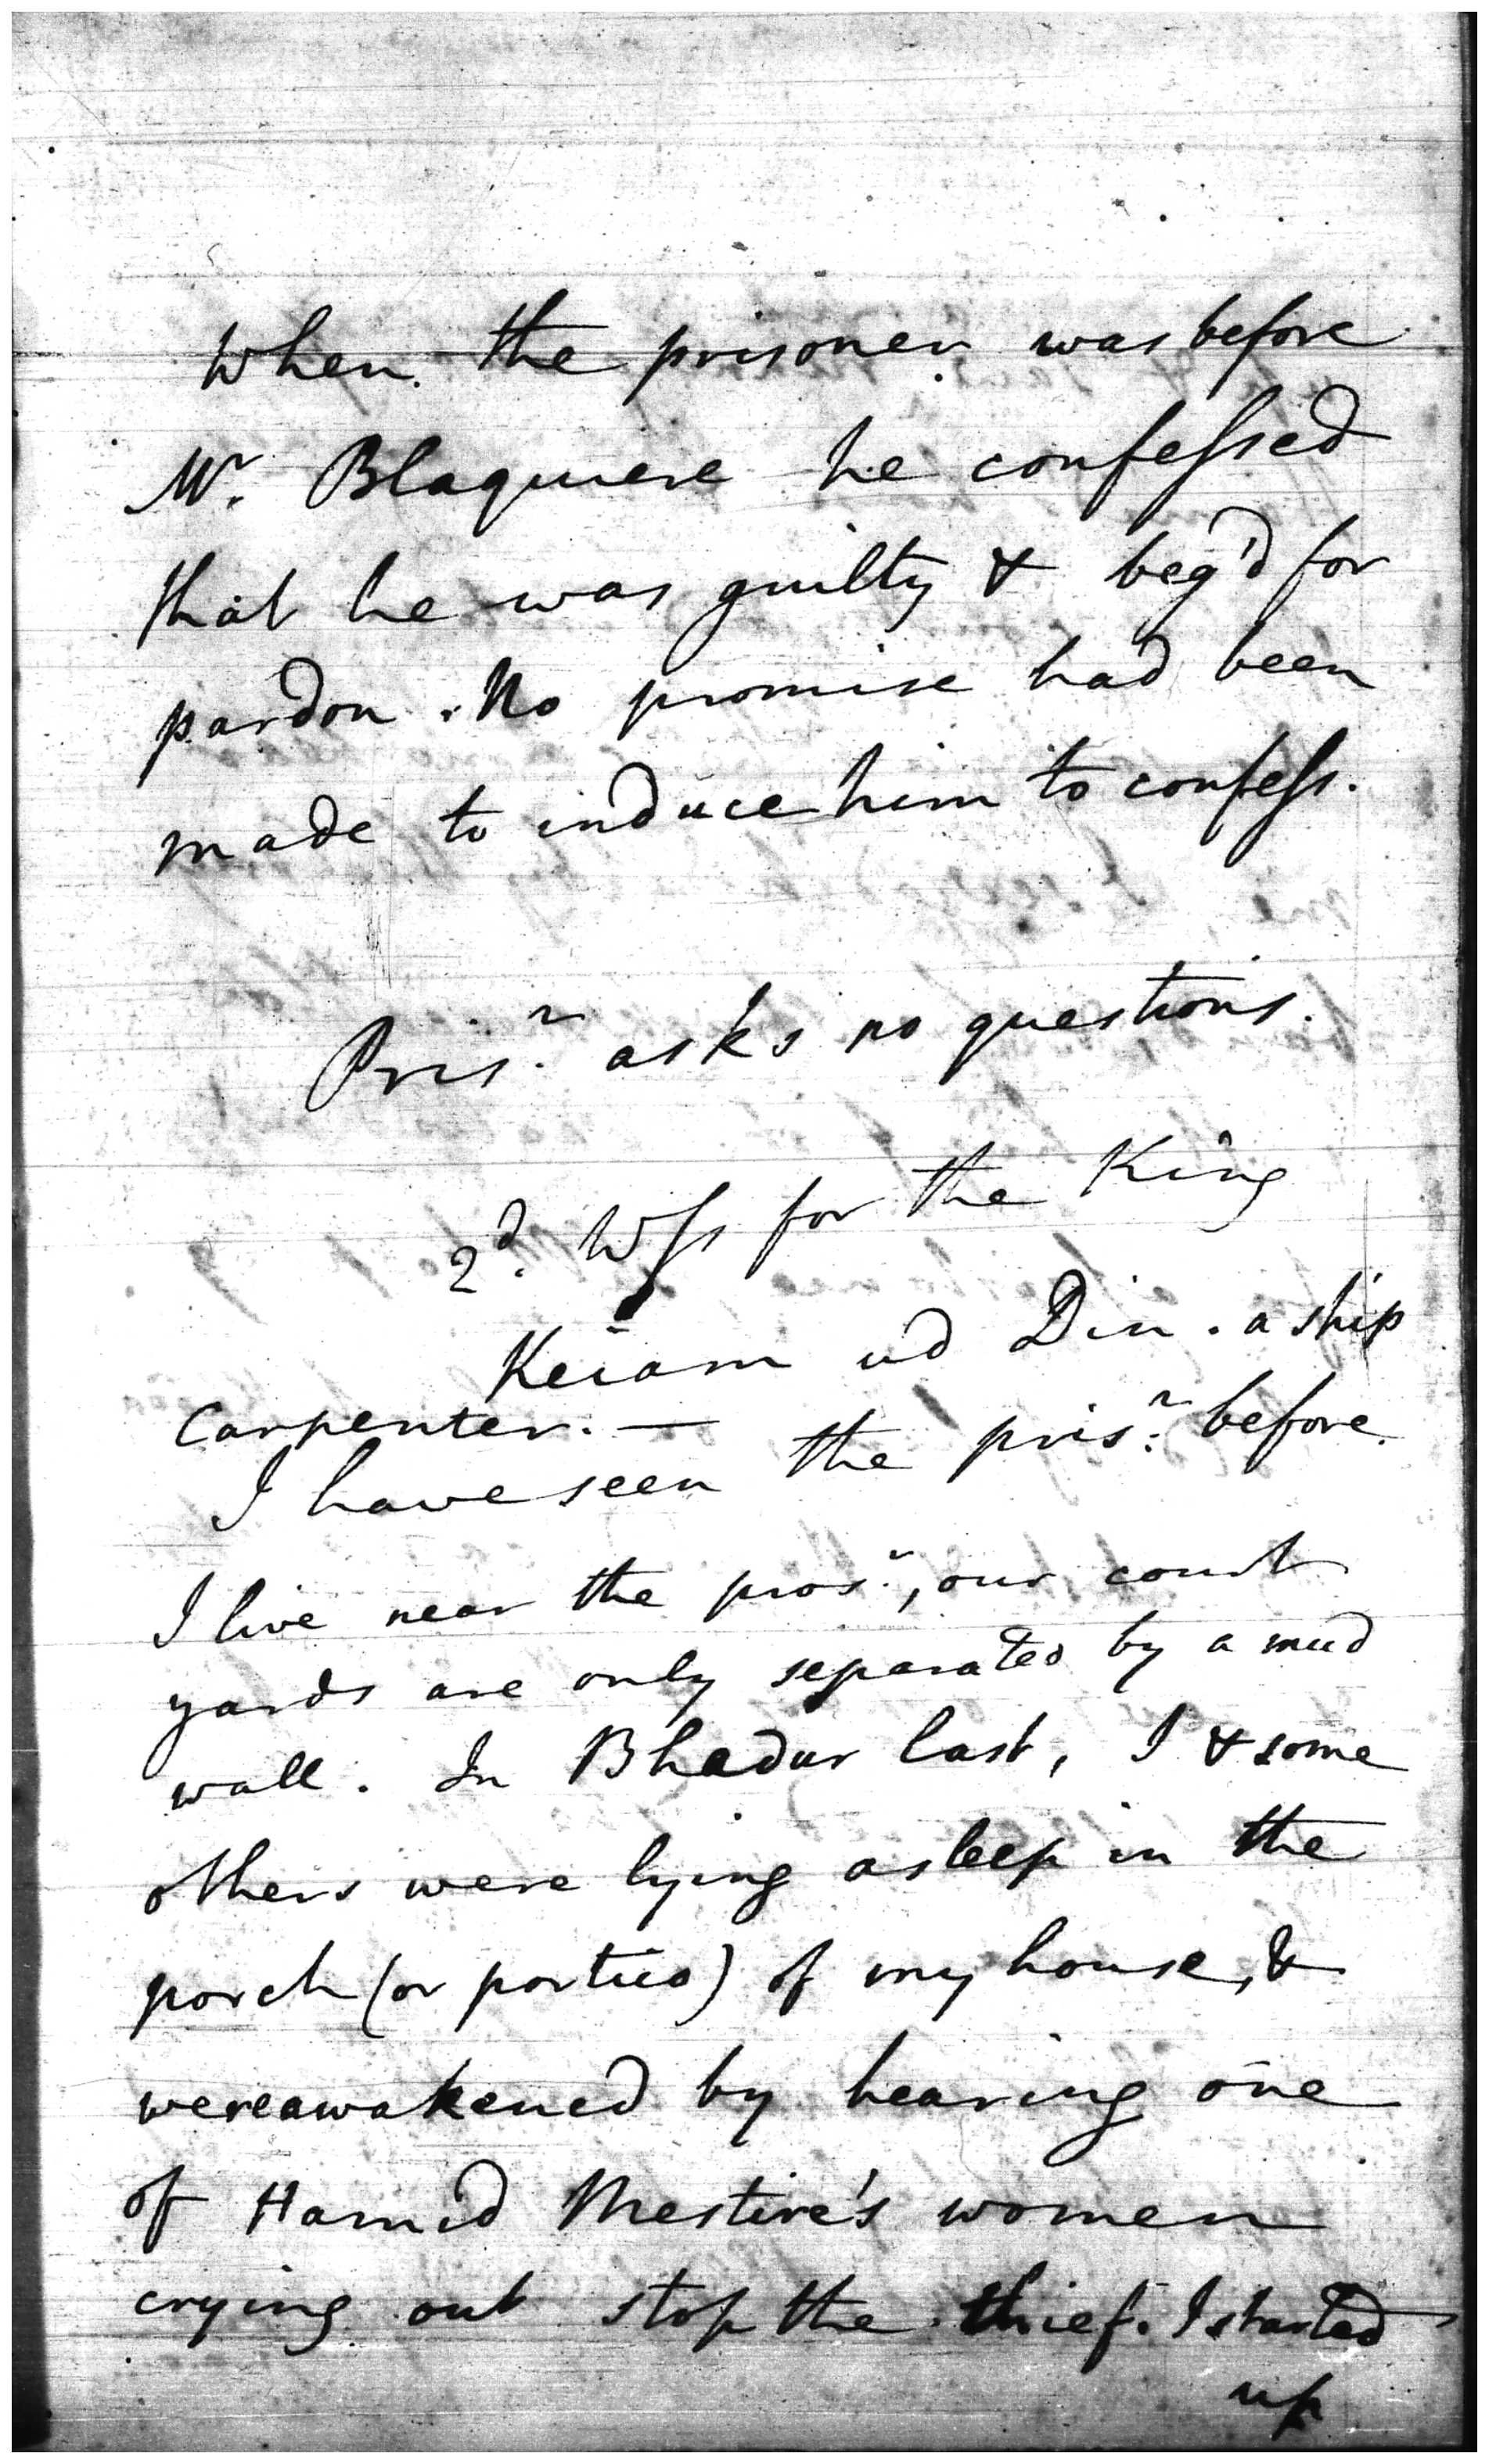 When the prisoner was before
Mr. Blaquiere he confessed
that he was guilty & beg'd for
pardon. No promise had been
made to induce him to confess.
Prisr. asks no questions.
2d. Wss for the King
Keiam ud Din. a ship
carpenter. —
I have seen the prisr. before.
I live near the prosr., our court
yards are only separated by a mud
wall. In Bhadur last, I & some
others were lying asleep in the
porch (or portico) of my house, &
were awakened by hearing one
of Hamid Mestire's women
crying out stop the thief. I started
up